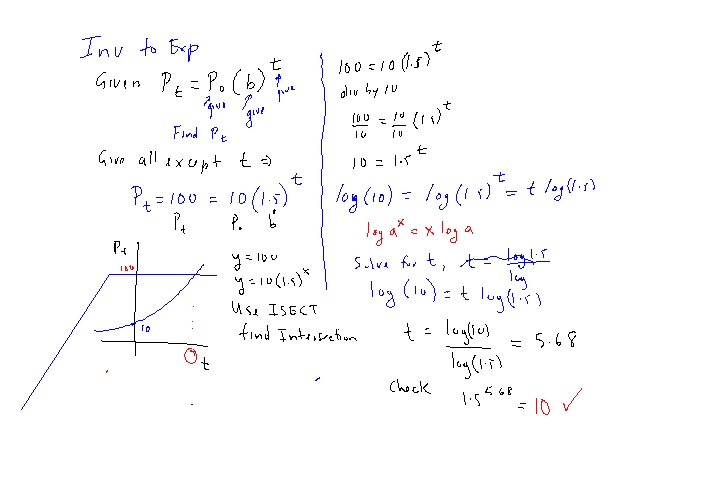 Inv to Exp
Given P_t = P_0 (b)^t
give give give
Find P_t
Give all except t ⇒
P_t = 100 = 10 (1.5)^t
P_t P_0 b
P_t
100
10
t
y = 100
y = 10(1.5)^x
Use ISECT
find Intersection
100 = 10 (1.5)^t
div by 10
100/10 = 10/10 (1.5)^t
10 = 1.5^t
log(10) = log(1.5)^t = t log(1.5)
log a^x = x log a
Solve for t, t = log 1.5 / log
log(10) = t log(1.5)
t = log(10) / log(1.5) = 5.68
Check 1.5^5.68 = 10 ✓